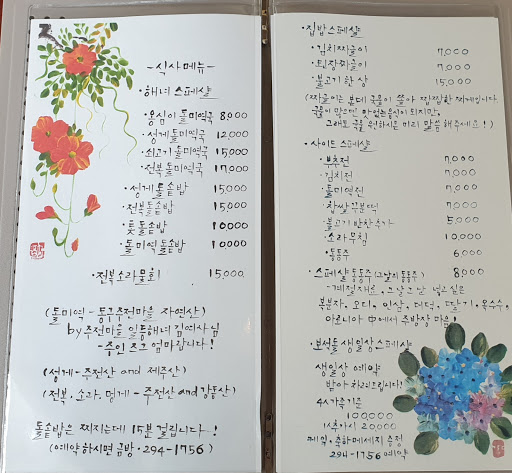 - 식사메뉴 -
• 해녀 스페셜
• 옹심이 돌미역국 8,000
• 성게 돌미역국 12,000
• 쇠고기 돌미역국 15,000
• 전복 돌미역국 17,000
• 성게 돌솥밥 15,000
• 전복 돌솥밥 15,000
• 톳 돌솥밥 10,000
• 돌미역 돌솥밥 10,000
• 전복소라물회 15,000
(돌미역 - 동구주전마을 자연산)
by 주전마을 일등해녀 김여사님
- 주인 친구 엄마랍니다!
(성게 - 주전산 and 제주산)
(전복, 소라, 멍게 - 주전산 and 강동산)
돌솥밥은 찌지는데 15분 걸립니다~!
(예약하시면 금방 • 294-1756)
• 집밥스페셜
• 김치짜글이 7,000
• 된장짜글이 7,000
• 불고기 한상 15,000
(짜글이는 본데 국물이 쫄아 짭짭한 찌개입니다
국물이 많으면 맛없는 음식이 되지만,
그래도 국물 원하시면 미리 말씀해주세요!)
• 사이드 스페셜
• 부추전 7,000
• 김치전 7,000
• 돌미역전 7,000
• 찹쌀구분떡 7,000
• 불고기 반찬추가 5,000
• 소라무침 10,000
• 동동주 6,000
• 스페셜동동주(그날의 동동주) 8,000
- 계절재료, 그날그날 넣고싶은
복분자, 오디, 인삼, 더덕, 딸기, 옥수수,
아로니아 中에서 주방장 마음!
• 보석돌 생일상스페셜
생일상 예약
받아 차려드립니다!
4인가족기준
100,000
1人추가시 20,000
케익, 축하메세지 증정
294-1756 예약